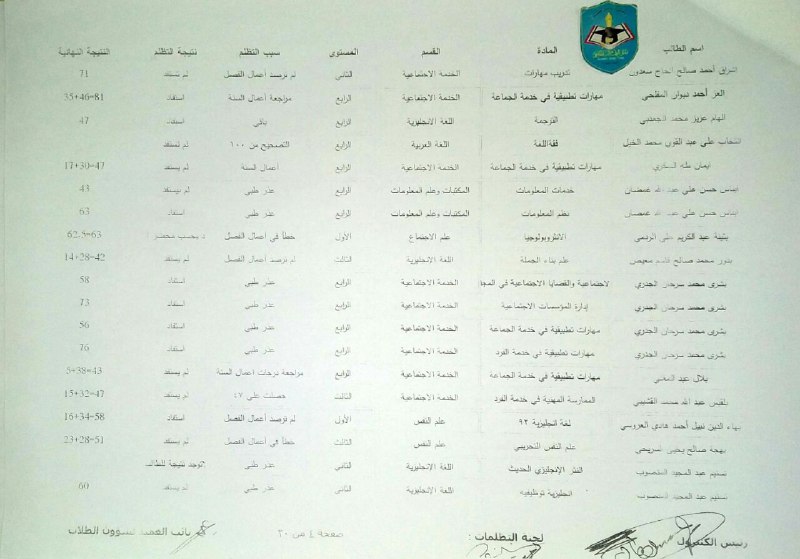 اسم الطالب المادة القسم المستوى سبب التظلم نتيجة التظلم النتيجة النهائية
اشراق أحمد صالح الحاج سعدون تدريب مهارات الخدمة الاجتماعية الثاني لم ترصد أعمال الفصل لم يستفد 71
العز أحمد مهارات تطبيقية في خدمة الجماعة الخدمة الاجتماعية الرابع مراجعة أعمال السنة استفاد 35+46=81
الهام عزيز محمد الترجمة اللغة الانجليزية الرابع باقي لم يستفد 47
علي عبد محمد فقه اللغة اللغة العربية الرابع التصحيح من ١٠٠ لم يستفد
ايمان طه مهارات تطبيقية في خدمة الجماعة الخدمة الاجتماعية الرابع أعمال السنة لم يستفد 17+30=47
حسن علي عبد الله خدمات المعلومات المكتبات وعلم المعلومات الرابع عذر طبي لم يستفد 43
حسن علي عبد الله نظم المعلومات المكتبات وعلم المعلومات الرابع عذر طبي استفاد 63
بثينة عبد الكريم علي الانثروبولوجيا علم الاجتماع الأول خطأ في أعمال الفصل 62.5=63
بدور محمد صالح قاسم علم بناء الجملة اللغة الانجليزية الثالث لم ترصد أعمال الفصل لم يستفد 14+28=42
بشرى محمد سرحان الجندي الاجتماعية والقضايا الاجتماعية في المج الخدمة الاجتماعية الرابع عذر طبي استفاد 58
بشرى محمد سرحان الجندي إدارة المؤسسات الاجتماعية الخدمة الاجتماعية الرابع عذر طبي استفاد 73
بشرى محمد سرحان الجندي مهارات تطبيقية في خدمة الجماعة الخدمة الاجتماعية الرابع عذر طبي استفاد 56
بشرى محمد سرحان الجندي مهارات تطبيقية في خدمة الفرد الخدمة الاجتماعية الرابع عذر طبي استفاد 76
بلال عبد مهارات تطبيقية في خدمة الجماعة الخدمة الاجتماعية الرابع مراجعة درجات اعمال السنة لم يستفد 5+38=43
بلقيس عبد الله محمد الممارسة المهنية في خدمة الفرد الخدمة الاجتماعية الثالث حصلت على ٤٧ لم يستفد 15+32=47
بهاء الدين نبيل أحمد هادي العروسي لغة انجليزية ٩٢ علم النفس الأول لم ترصد أعمال الفصل استفاد 16+34=58
بهجة صالح يحيى علم النفس التجريبي علم النفس الثالث خطأ في أعمال الفصل لم يستفد 23+28=51
تسنيم عبد المجيد النثر الإنجليزي الحديث اللغة الإنجليزية الثاني عذر طبي توجد نتيجة للطالب
تسنيم عبد المجيد انجليزية توظيفية اللغة الإنجليزية الثاني عذر طبي لم يستفد 60
رئيس الكنترول لجنة التظلمات : صفحة ٤ من ٢٠ نائب العميد لشؤون الطلاب